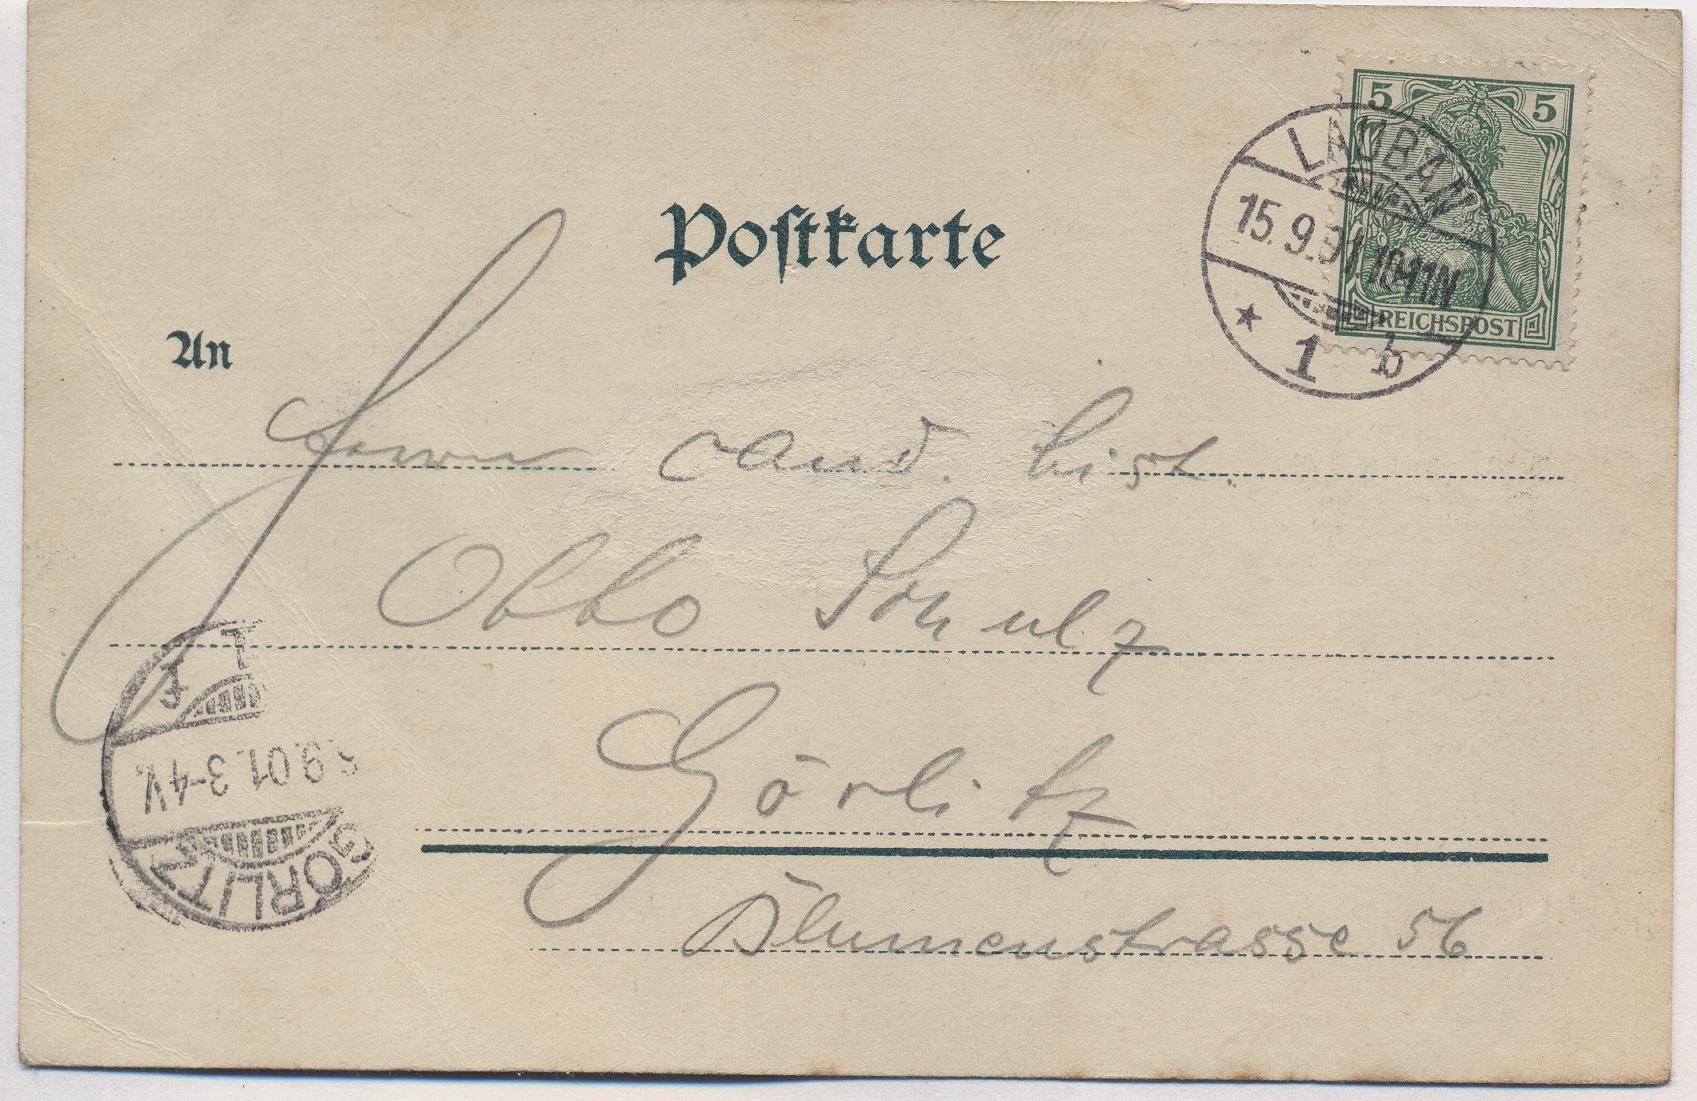 Postkarte
5 5
REICHSPOST
LAUBAN
15.9.01.10-11N
* 1 b
An
Herrn cand. hist.
Otto Schulz
Görlitz
Blumenstrasse 56
GÖRLITZ
9.01.3-4V.
1